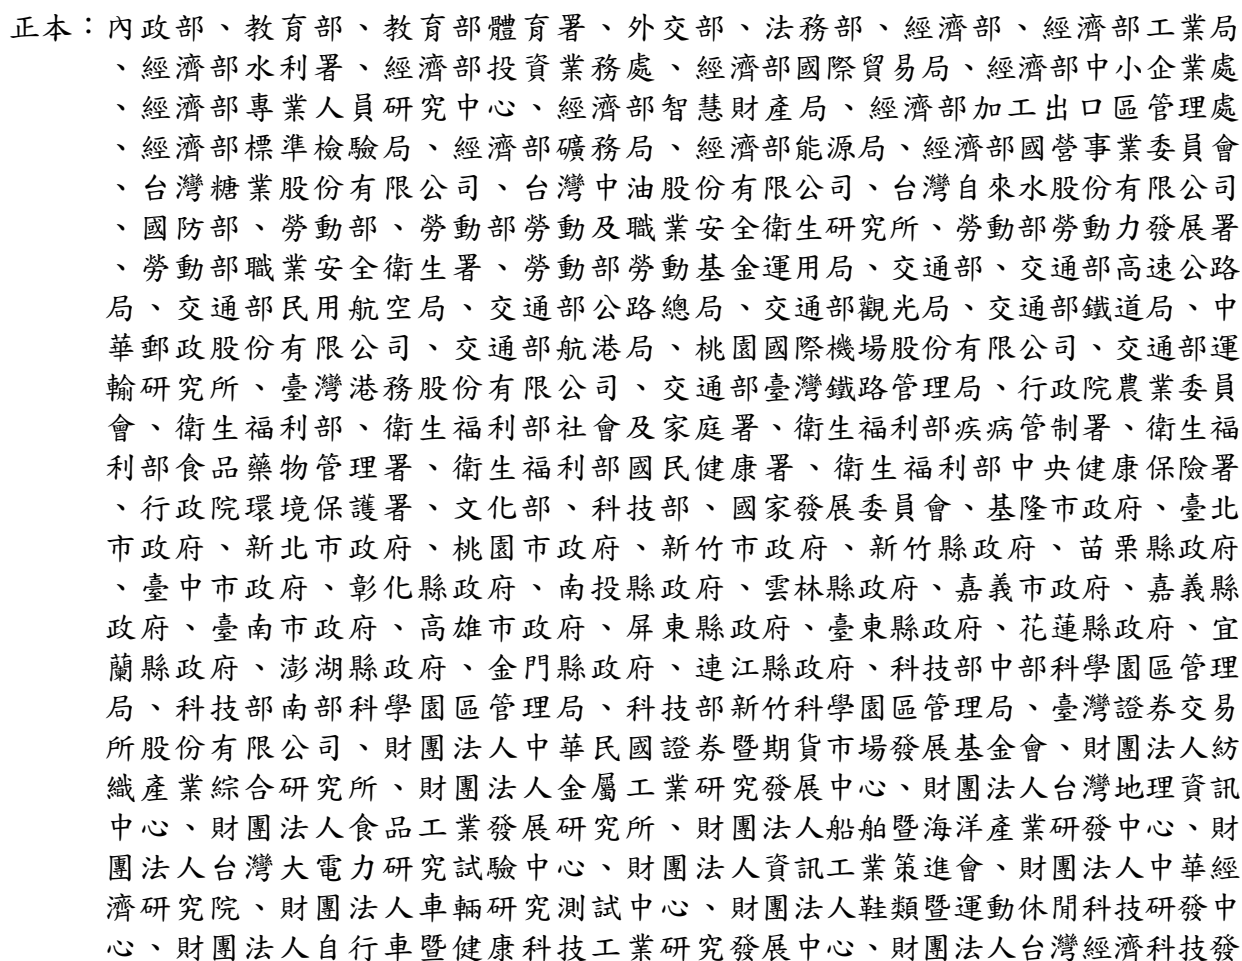 正本：內政部、教育部、教育部體育署、外交部、法務部、經濟部、經濟部工業局
、經濟部水利署、經濟部投資業務處、經濟部國際貿易局、經濟部中小企業處
、經濟部專業人員研究中心、經濟部智慧財產局、經濟部加工出口區管理處
、經濟部標準檢驗局、經濟部礦務局、經濟部能源局、經濟部國營事業委員會
、台灣糖業股份有限公司、台灣中油股份有限公司、台灣自來水股份有限公司
、國防部、勞動部、勞動部勞動及職業安全衛生研究所、勞動部勞動力發展署
、勞動部職業安全衛生署、勞動部勞動基金運用局、交通部、交通部高速公路
局、交通部民用航空局、交通部公路總局、交通部觀光局、交通部鐵道局、中
華郵政股份有限公司、交通部航港局、桃園國際機場股份有限公司、交通部運
輸研究所、臺灣港務股份有限公司、交通部臺灣鐵路管理局、行政院農業委員
會、衛生福利部、衛生福利部社會及家庭署、衛生福利部疾病管制署、衛生福
利部食品藥物管理署、衛生福利部國民健康署、衛生福利部中央健康保險署
、行政院環境保護署、文化部、科技部、國家發展委員會、基隆市政府、臺北
市政府、新北市政府、桃園市政府、新竹市政府、新竹縣政府、苗栗縣政府
、臺中市政府、彰化縣政府、南投縣政府、雲林縣政府、嘉義市政府、嘉義縣
政府、臺南市政府、高雄市政府、屏東縣政府、臺東縣政府、花蓮縣政府、宜
蘭縣政府、澎湖縣政府、金門縣政府、連江縣政府、科技部中部科學園區管理
局、科技部南部科學園區管理局、科技部新竹科學園區管理局、臺灣證券交易
所股份有限公司、財團法人中華民國證券暨期貨市場發展基金會、財團法人紡
織產業綜合研究所、財團法人金屬工業研究發展中心、財團法人台灣地理資訊
中心、財團法人食品工業發展研究所、財團法人船舶暨海洋產業研發中心、財
團法人台灣大電力研究試驗中心、財團法人資訊工業策進會、財團法人中華經
濟研究院、財團法人車輛研究測試中心、財團法人鞋類暨運動休閒科技研發中
心、財團法人自行車暨健康科技工業研究發展中心、財團法人台灣經濟科技發